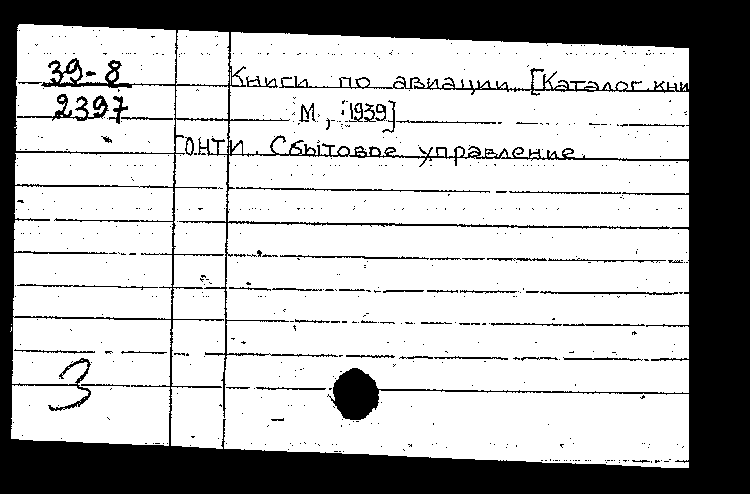 39-8
2397
Книги по авиации. [Каталог кни
М, 1939]
ГОНТИ. Сбытовое управление.
3